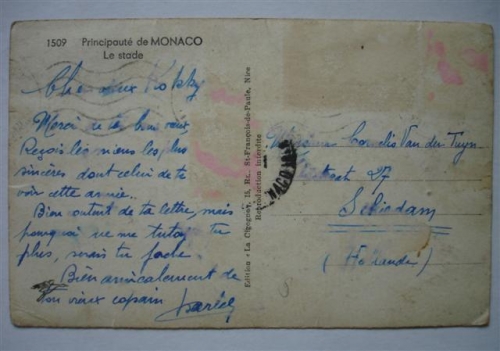 1509 Principauté de MONACO
Le stade
Cher vieux
Merci de tes bons vœux
Reçois les miens les plus
sincères dont celui de te
voir cette année..
Bien content de ta lettre, mais
pourquoi ne me tutoies tu
plus, serais tu faché.
Bien amicalement de
ton vieux copain
Edition «La Cigogne», 15, Rue St-François-de-Paule, Nice
Reproduction interdite
MONACO
Monsieur Cornelis Van der Tuyn
27
Schiedam
(Hollande)